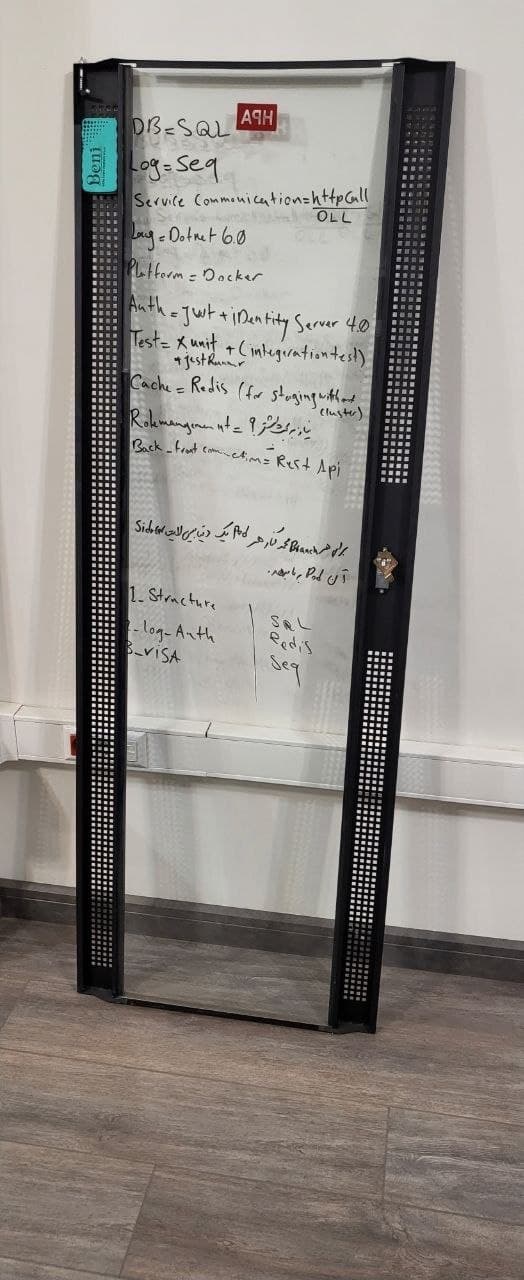 HPA
Beni
DB=SQL
Log=Seq
Service Communication=httpCall
DLL
Lang=Dotnet 6.0
Platform=Docker
Auth=Jwt+iDentity Server 4.0
Test=Xunit+(integeration test)
+jestRunner
Cache=Redis (for staging without
cluster)
Rolemanagement=
Back_front connection=Rest Api
برای هر Branch هر Pod یک
آن Pod
1_ Structure
2_log_Auth
3_VISA
SQL
Redis
Seq